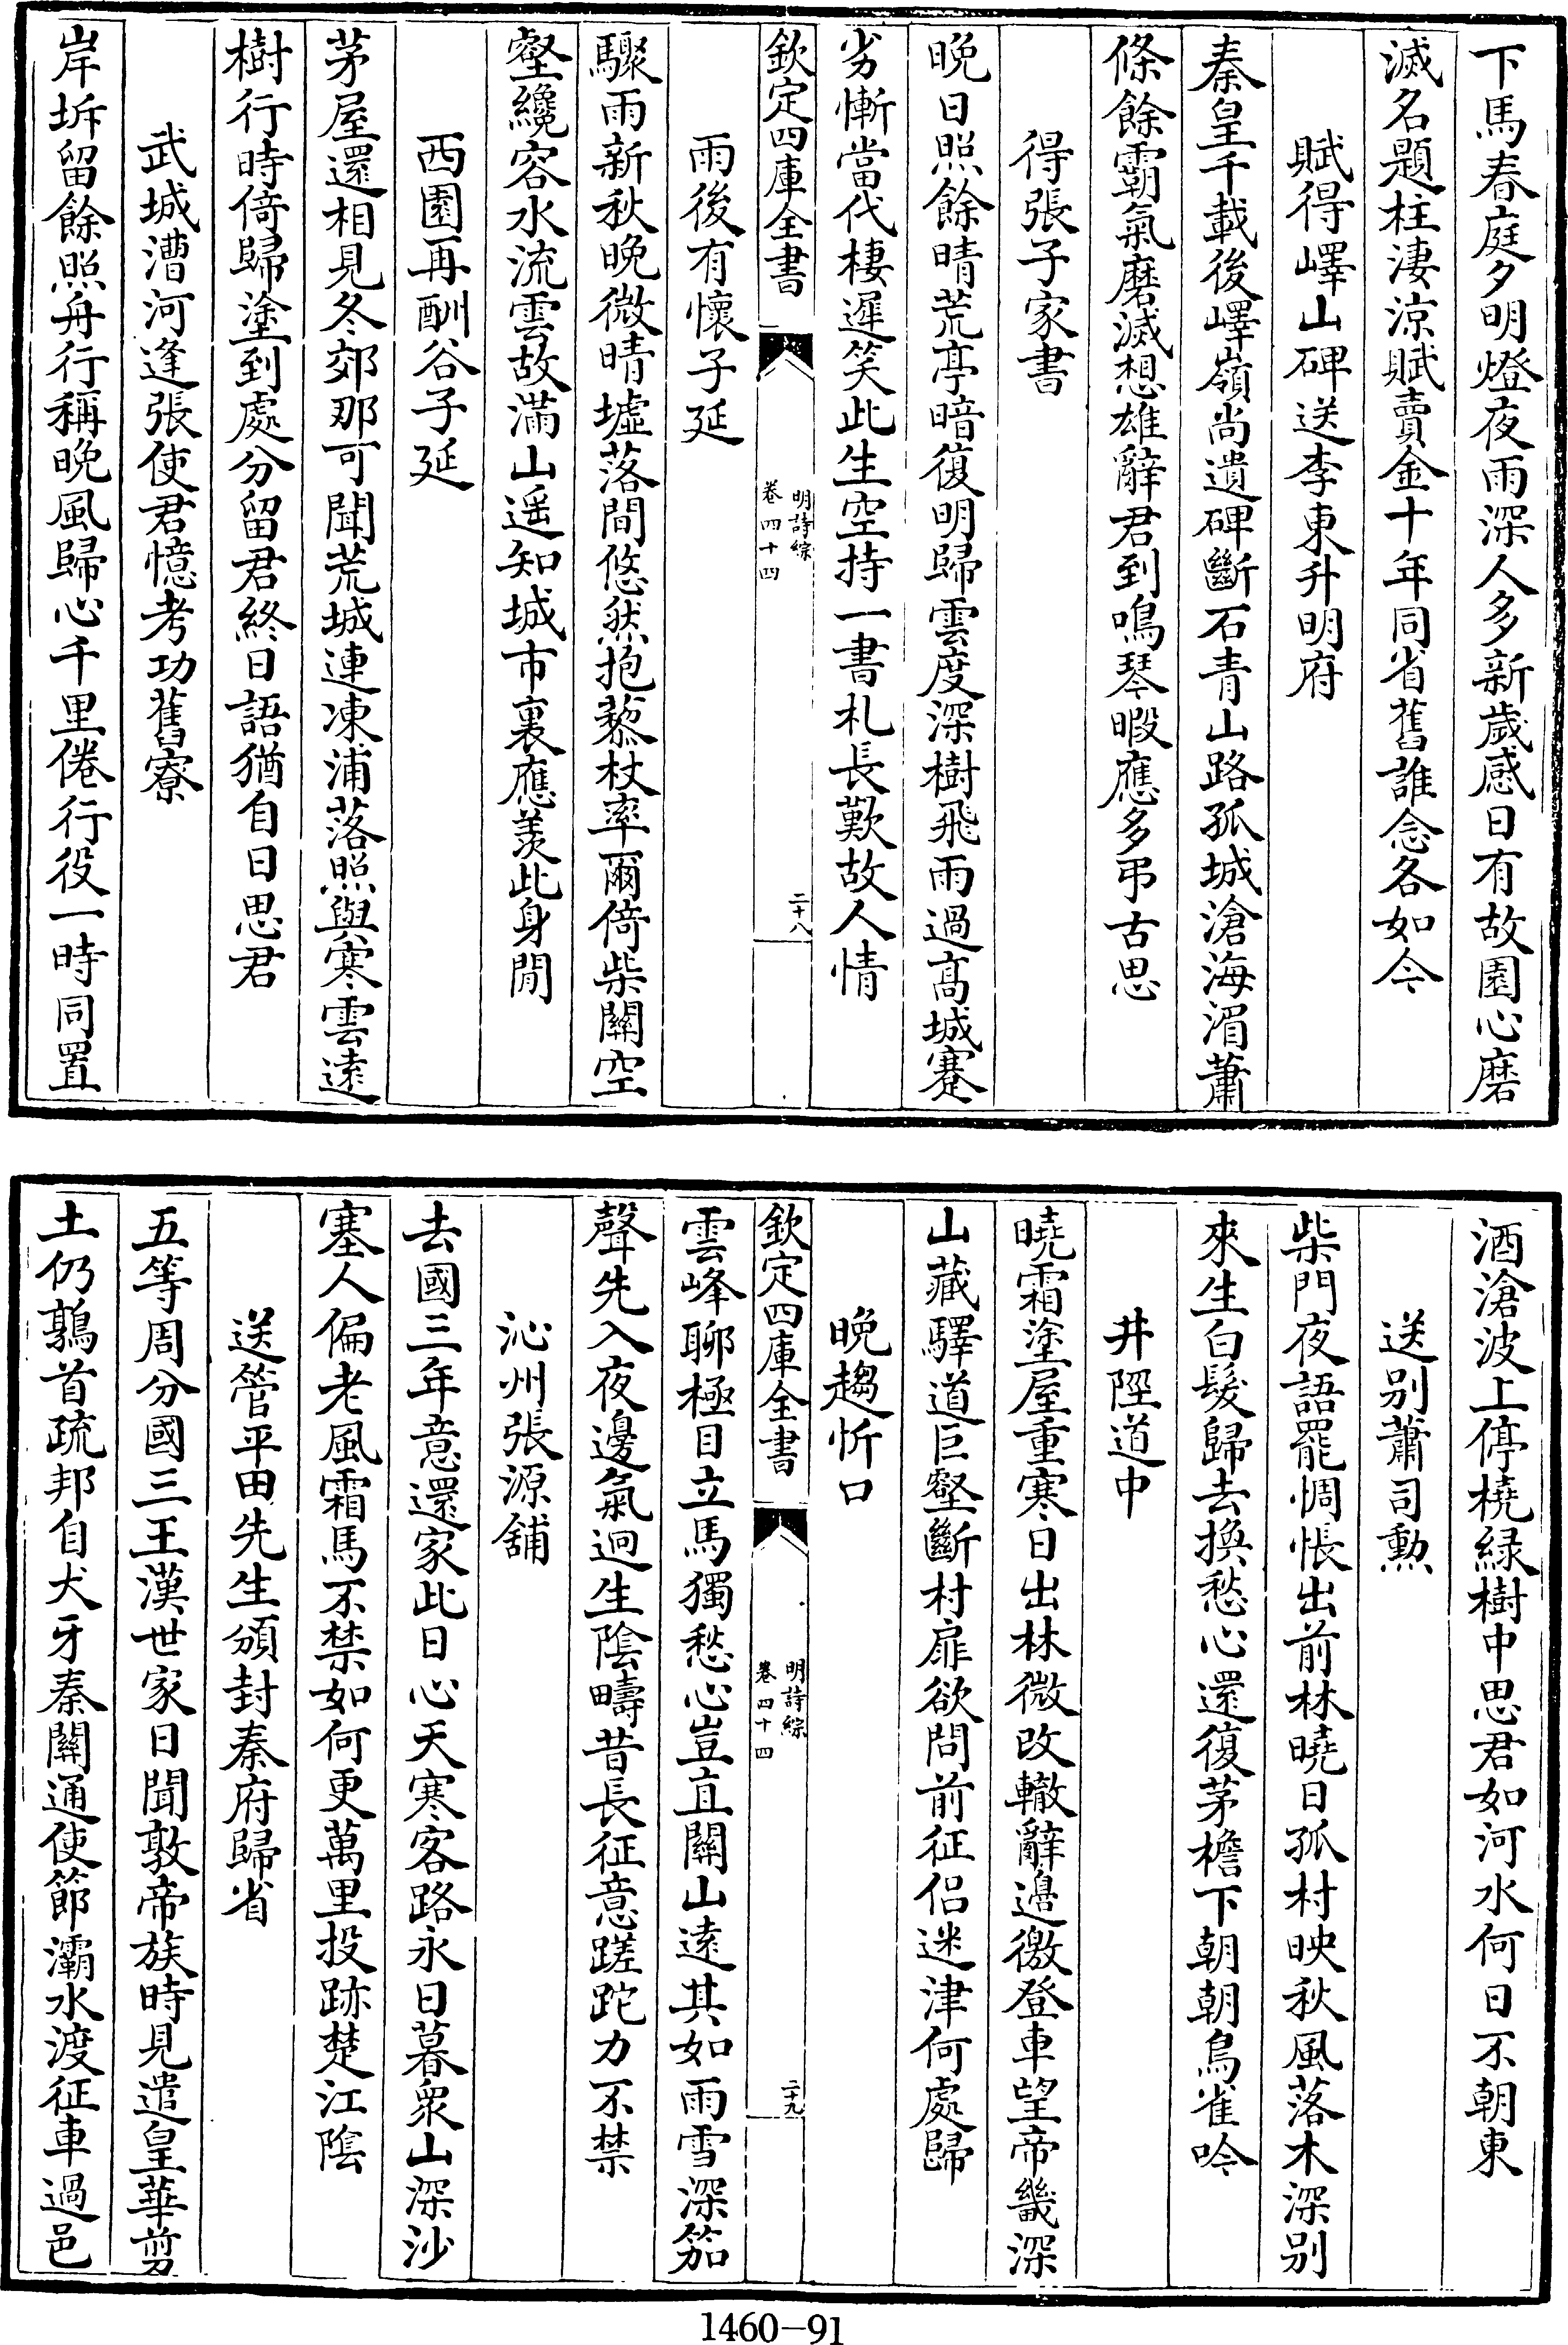 下馬春庭夕明燈夜雨深人多新歲感日有故園心磨
滅名題柱淒涼賦賣金十年同省舊誰念各如今
賦得嶧山碑送李東升明府
秦皇千載後嶧嶺尚遺碑斷石青山路孤城滄海湄蕭
條餘霸氣磨滅想雄辭君到鳴琴暇應多弔古思
得張子家書
晚日照餘晴荒亭暗復明歸雲度深樹飛雨過髙城蹇
劣慚當代棲遲笑此生空持一書札長歎故人情
欽定四庫全書
明詩綜
卷四十四
二十八
雨後有懷子延
驟雨新秋晚微晴墟落間悠然抱藜杖率爾倚柴關空
壑纔容水流雲故滿山遥知城市裏應羡此身閒
西園再酬谷子延
茅屋還相見冬郊那可聞荒城連凍浦落照與寒雲遠
樹行時倚歸塗到處分留君終日語猶自日思君
武城漕河逢張使君憶考功舊寮
岸坼留餘照舟行稱晚風歸心千里倦行役一時同置
酒滄波上停橈緑樹中思君如河水何日不朝東
送别蕭司勲
柴門夜語罷惆悵出前林曉日孤村映秋風落木深别
來生白髮歸去換愁心還復茅檐下朝朝鳥雀吟
井陘道中
曉霜塗屋重寒日出林微改轍辭邊徼登車望帝畿深
山藏驛道巨壑斷村扉欲問前征侣迷津何處歸
晚趨忻口
欽定四庫全書
明詩綜
卷四十四
二十九
雲峰聊極目立馬獨愁心豈直關山遠其如雨雪深笳
聲先入夜邊氣迥生陰疇昔長征意蹉跎力不禁
沁州張源舖
去國三年意還家此日心天寒客路永日暮衆山深沙
塞人偏老風霜馬不禁如何更萬里投跡楚江陰
送管平田先生頒封秦府歸省
五等周分國三王漢世家日聞敦帝族時見遣皇華剪
土仍鶉首疏邦自犬牙秦關通使節灞水渡征車過邑
1460-91